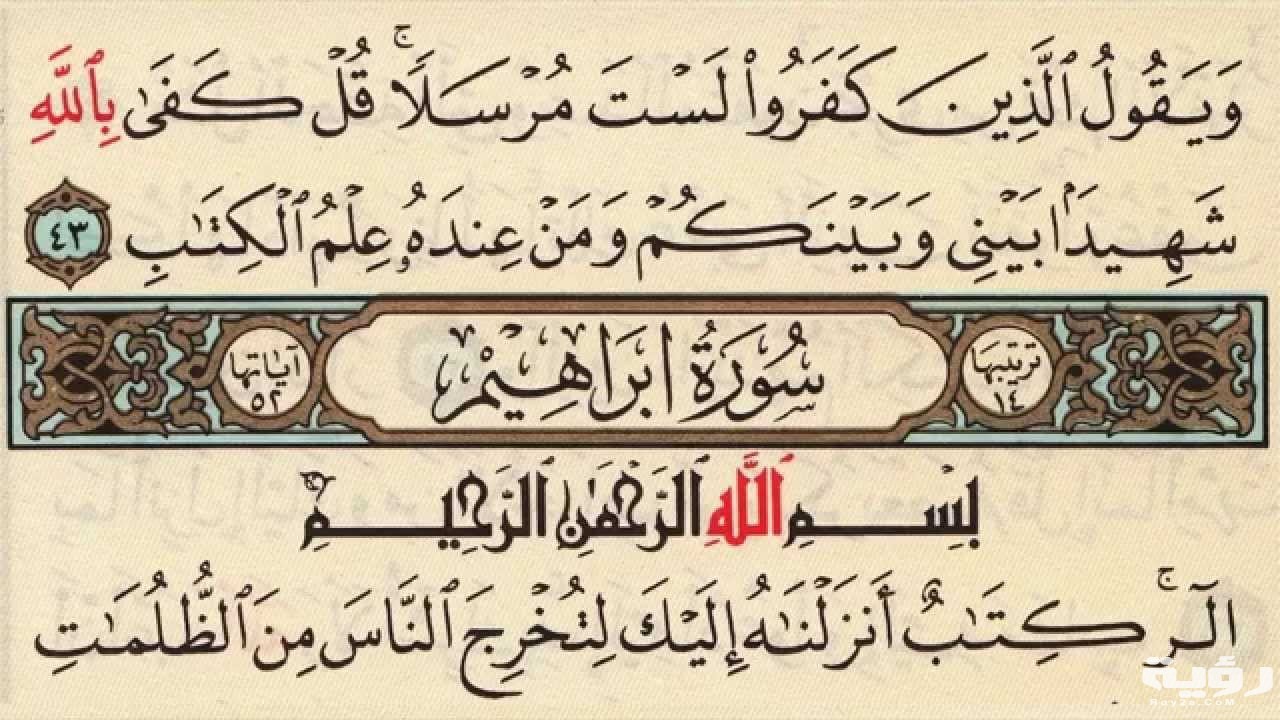 وَيَقُولُ ٱلَّذِينَ كَفَرُواْ لَسْتَ مُرْسَلًاۚ قُلْ كَفَىٰ بِٱللَّهِ
شَهِيدَۢا بَيْنِي وَبَيْنَكُمْ وَمَنْ عِندَهُۥ عِلْمُ ٱلْكِتَٰبِ ٤٣
تَرتيبها ١٤
سُورَةُ ابْرَاهِيْمْ
آياتها ٥٢
بِسْمِ ٱللَّهِ ٱلرَّحْمَٰنِ ٱلرَّحِيمِ
الٓرۚ كِتَٰبٌ أَنزَلْنَٰهُ إِلَيْكَ لِتُخْرِجَ ٱلنَّاسَ مِنَ ٱلظُّلُمَٰتِ
رؤية
Roy2e.CoM